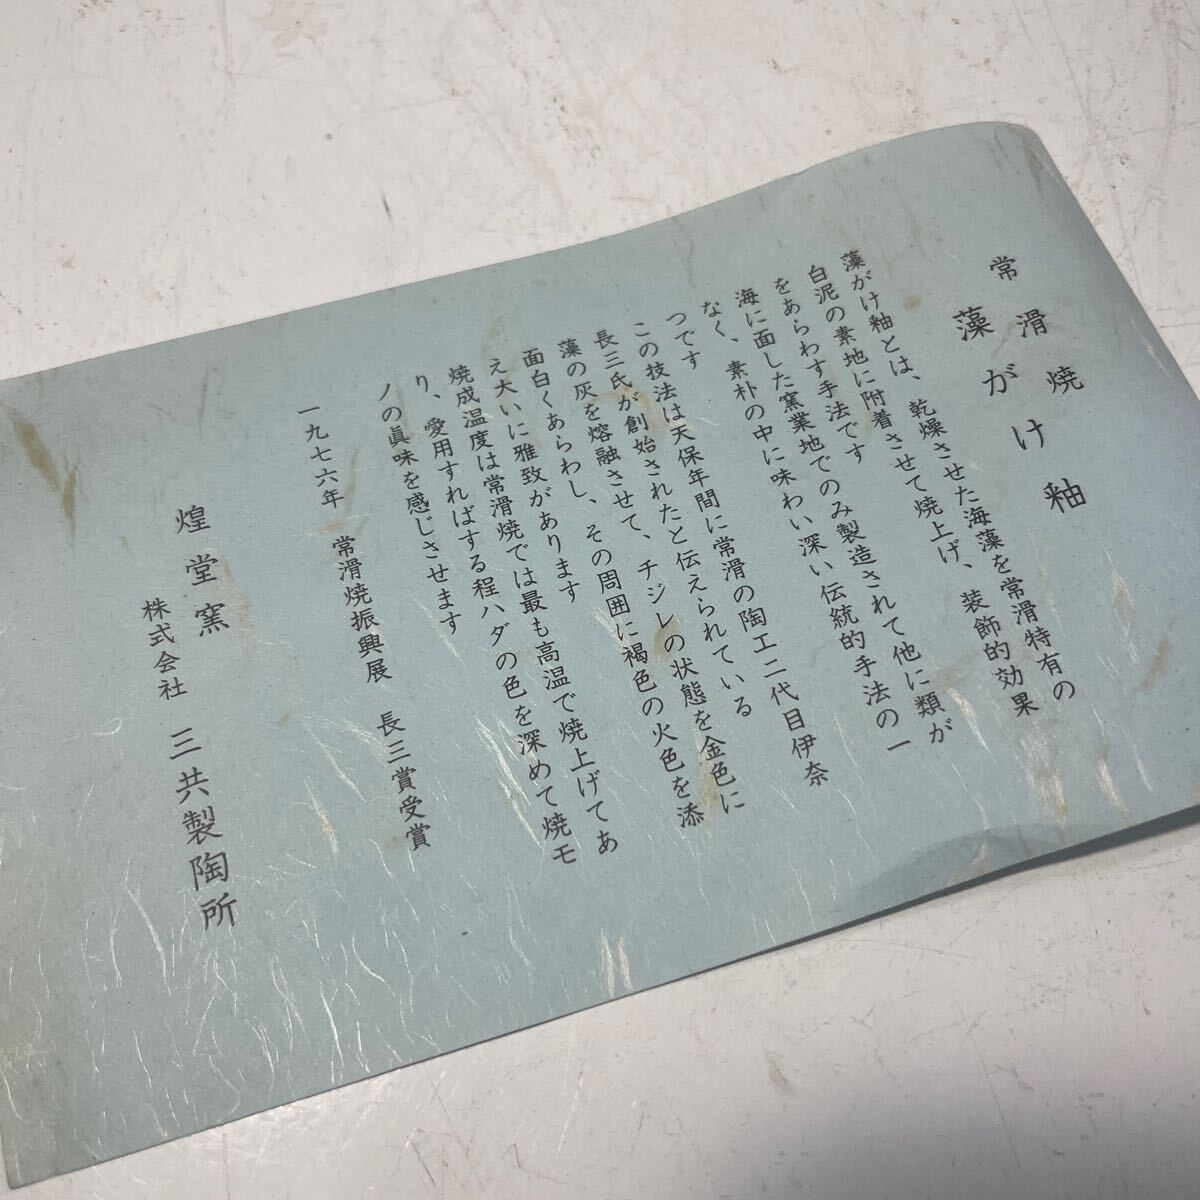 常滑焼
藻がけ釉
藻がけ釉とは、乾燥させた海藻を常滑特有の
白泥の素地に附着させて焼上げ、装飾的効果
をあらわす手法です
海に面した窯業地でのみ製造されて他に類が
なく、素朴の中に味わい深い伝統的手法の一
つです
この技法は天保年間に常滑の陶工二代目伊奈
長三氏が創始されたと伝えられている
藻の灰を熔融させて、チジレの状態を金色に
面白くあらわし、その周囲に褐色の火色を添
え大いに雅致があります
焼成温度は常滑焼では最も高温で焼上げてあ
り、愛用すればする程ハダの色を深めて焼モ
ノの眞味を感じさせます
一九七六年　常滑焼振興展　長三賞受賞
煌堂窯
株式会社　三共製陶所